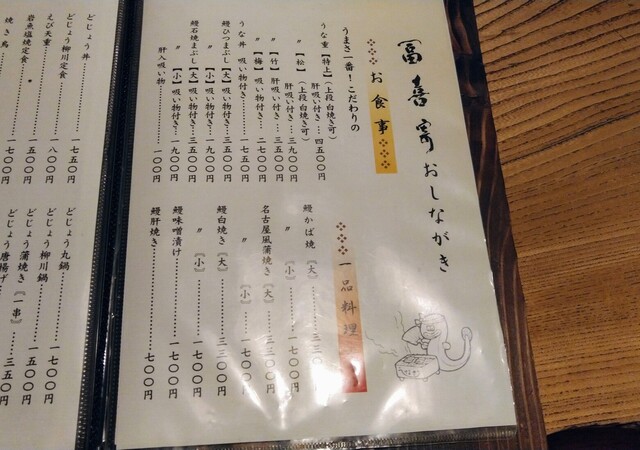 冨喜寄おしながき
お食事
うまさ一番！こだわりの
うな重【特上】（上段白焼き可）
肝吸い付き…四五〇〇円
〃【松】（上段白焼き可）
肝吸い付き…三九〇〇円
〃【竹】肝吸い付き…三五〇〇円
〃【梅】吸い物付き…二七〇〇円
うな丼 吸い物付き………一七五〇円
鰻ひつまぶし【大】吸い物付き…三五〇〇円
〃【小】吸い物付き…一九〇〇円
鰻石焼まぶし【大】吸い物付き…三五〇〇円
〃【小】吸い物付き…一九〇〇円
肝入吸い物………………一〇〇円
一品料理
鰻かば焼〔大〕
〃〔小〕………一七〇〇円
名古屋風蒲焼き〔大〕…三三〇〇円
〃〔小〕…一七〇〇円
鰻白焼き〔大〕………三三〇〇円
〃〔小〕………一七〇〇円
鰻味噌漬け………………一七〇〇円
鰻肝焼き…………………七〇〇円
どじょう丼………………一七五〇円
どじょう柳川定食………一七〇〇円
えび天重…………………一八〇〇円
岩魚塩焼定食……………一五〇〇円
焼き鳥……一七〇〇円
どじょう丸鍋……………一七〇〇円
どじょう柳川鍋…………一七〇〇円
どじょう蒲焼き〔一串〕…一五〇〇円
どじょう唐揚げ……三五〇円